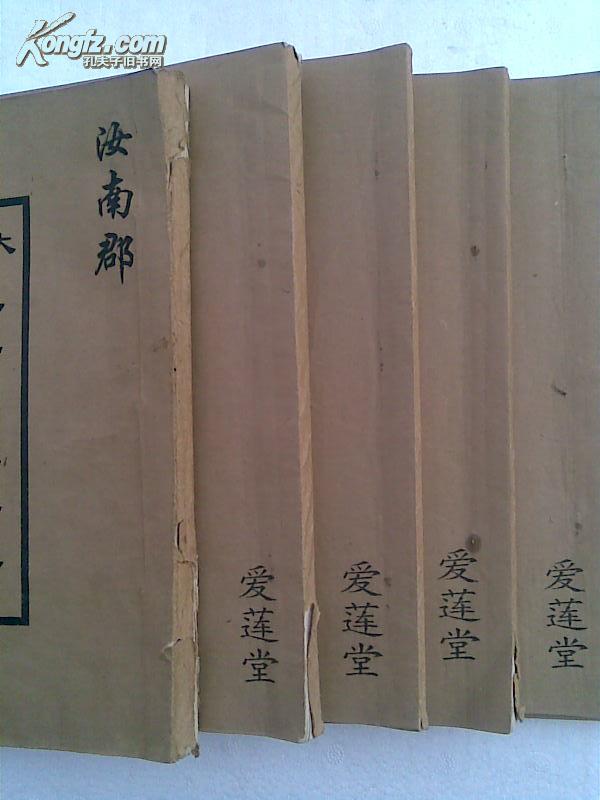 Kongfz.com
孔夫子旧书网
汝南郡
爱莲堂
爱莲堂
爱莲堂
爱莲堂